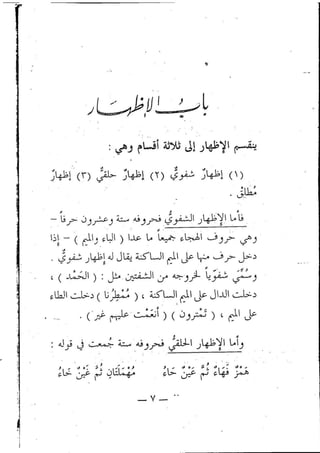 باب الإظهار
ينقسم الإظهار إلى ثلاثة أقسام وهي :
(١) إظهارٌ شفويٌّ (٢) إظهارٌ حلقيٌّ (٣) إظهارٌ
مُطلق .
فأما الإظهار الشفويُّ فحروفه ستة وعشرون حرفاً –
وهي حروف الهجاء جميعاً ما عدا ( الباء والميم ) – إذا
دخل حرف منها على الميم الساكنة يقال له إظهار شفويٌّ .
وسُمّي شفوياً لخروجه من الشفتين مثل : ( الحَمْد ) ،
دخلت الدال على الميم الساكنة ، ( مُمْطِرنَا ) دخلت الطاء
على الميم ، ( تَمْترون ) ( أنعمْت عليهم غير ) .
وأما الإظهار الحلقيُّ فحروفه ستة جُمعت في قوله :
هَمْزٌ فَهَاءٌ ثُمَّ عَيْنٌ حَاءٌ مُهْمَلَتَانِ ثُمَّ غَيْنٌ خَاءٌ
– ٧ –